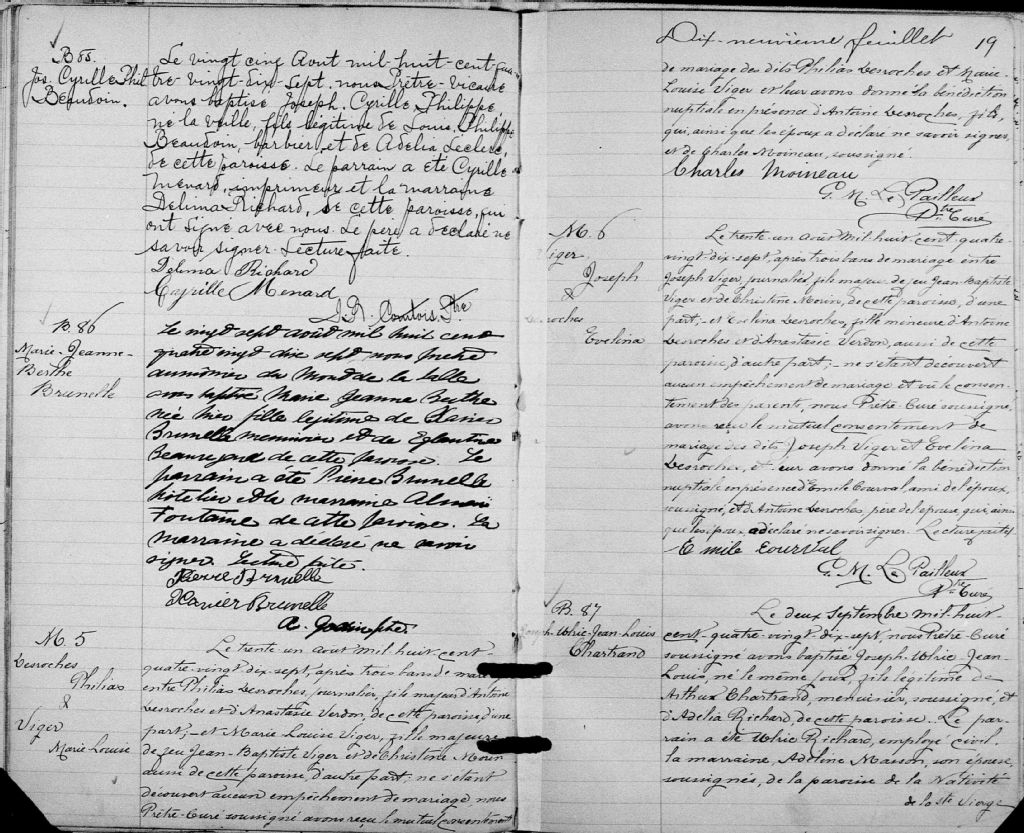 B 85.
Jos. Cyrille Phil
Beaudoin.
Le vingt cinq Aout mil-huit-cent-qua-
tre-vingt-dix-sept, nous Prêtre-Vicaire
avons baptisé Joseph. Cyrille Philippe
né la veille, fils légitime de Louis. Philippe
Beaudoin, barbier, et de Adelia Leclerc,
de cette paroisse. Le parrain a été Cyrille
Ménard, imprimeur et la marraine
Délima Richard, de cette paroisse, qui
ont signé avec nous. Le père a déclaré ne
savoir signer. Lecture faite.
Delima Richard
Cyrille Menard
Comtois, Ptre
B. 86
Marie-Jeanne-
Berthe
Brunelle
Le vingt sept août mil huit cent
quatre vingt dix sept, nous prêtre
aumonier du Mont de la Salle
avons baptisé Marie Jeanne Berthe
née hier fille légitime de Xavier
Brunelle menuisier et de Eglantine
Beauregard de cette paroisse. Le
parrain a été Pierre Brunelle
hôtelier et la marraine
Fontaine de cette paroisse. La
marraine a déclaré ne savoir
signer. Lecture faite.
Pierre Brunelle
Xavier Brunelle
A. ptre.
M. 5
Desroches
Philias
&
Viger
Marie Louise
Le trente un Août mil huit cent-
quatre-vingt dix-sept, après trois bans de mariage
entre Philias Desroches, journalier, fils majeur d'Antoine
Desroches et d'Anastasie Verdon, de cette paroisse d'une
part; - et Marie Louise Viger, fille majeure
de feu Jean-Baptiste Viger et de Christine Morin
aussi de cette paroisse, d'autre part; ne s'étant
découvert aucun empêchement de mariage, nous
Prêtre-Curé soussigné avons reçu le mutuel consentement
Dix-neuvième feuillet 19
de mariage des dits Philias Desroches et Marie-
Louise Viger et leur avons donné la bénédiction
nuptiale en présence d'Antoine Desroches, fils,
qui, ainsi que les époux a déclaré ne savoir signer,
et de Charles Moineau, soussigné.
Charles Moineau
G. M. Le Pailleur
Ptre Curé
M. 6
Viger
Joseph
&
Desroches
Evelina
Le trente-un Août Mil-huit-cent-quatre-
vingt dix-sept, après trois bans de mariage entre
Joseph Viger, journalier, fils majeur de feu Jean-Baptiste
Viger et de Christine Morin, de cette paroisse, d'une
part; - et Evelina Desroches, fille mineure d'Antoine
Desroches et d'Anastasie Verdon, aussi de cette
paroisse, d'autre part; - ne s'étant découvert
aucun empêchement de mariage et vu le consen-
tement des parents, nous Prêtre-Curé soussigné,
avons reçu le mutuel consentement de
mariage des dits Joseph Viger et Evelina
Desroches, et leur avons donné la bénédiction
nuptiale en présence d'Emile Courval, ami de l'époux,
soussigné, et d'Antoine Desroches, père de l'épouse qui, ainsi
que les époux a déclaré ne savoir signer. Lecture faite
Emile Courval
G. M. Le Pailleur
Ptre Curé
B. 87
Joseph-Ulric-Jean-Louis
Chartrand
Le deux Septembre mil-huit
cent-quatre-vingt dix-sept, nous Prêtre-Curé
soussigné avons baptisé Joseph-Ulric-Jean-
Louis, né le même jour, fils légitime de
Arthur Chartrand, menuisier, soussigné, et
d'Adelia Richard, de cette paroisse. Le par-
rain a été Ulric Richard, employé civil.
la marraine, Adeline Masson, son épouse,
soussignés, de la paroisse de la Nativité
de la Ste Vierge